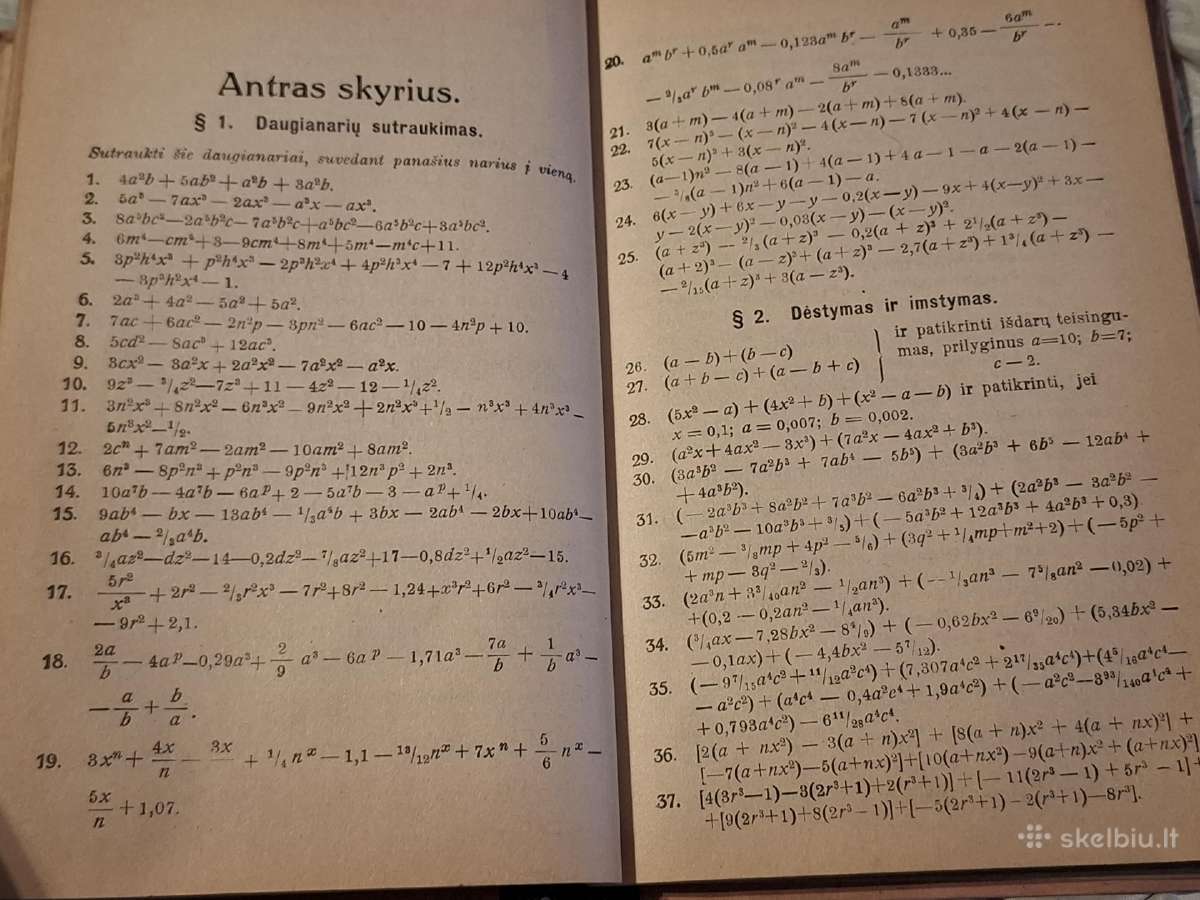 Antras skyrius.
§ 1. Daugianarių sutraukimas.
Sutraukti šie daugianariai, suvedant panašius narius į vieną.
1. 4a²b + 5ab² + a²b + 3a²b.
2. 5a³ — 7ax³ — 2ax³ — a³x — ax³.
3. 8a⁵bc² — 2a⁵b²c — 7a⁵b²c + a⁵bc² — 6a⁵b²c + 3a⁵bc².
4. 6m⁴ — cm⁵ + 3 — 9cm⁴ + 8m⁴ + 5m⁴ — m⁴c + 11.
5. 3p²h⁴x³ + p²h⁴x³ — 2p³h²x⁴ + 4p²h³x⁴ — 7 + 12p²h⁴x³ — 4
— 3p³h²x⁴ — 1.
6. 2a³ + 4a² — 5a² + 5a².
7. 7ac + 6ac² — 2n²p — 3pn² — 6ac² — 10 — 4n²p + 10.
8. 5cd² — 8ac³ + 12ac³.
9. 3cx² — 3a²x + 2a²x² — 7a²x² — a²x.
10. 9z³ — ³/₄z² — 7z³ + 11 — 4z² — 12 — ¹/₄z².
11. 3n²x³ + 8n²x² — 6n³x² — 9n²x² + 2n²x³ + ¹/₂ — n³x³ + 4n³x³ —
5n³x² — ¹/₂.
12. 2cⁿ + 7am² — 2am² — 10am² + 8am².
13. 6n³ — 8p²n³ + p²n³ — 9p²n³ + 12n³p² + 2n³.
14. 10a⁷b — 4a⁷b — 6aᵖ + 2 — 5a⁷b — 3 — aᵖ + ¹/₄.
15. 9ab⁴ — bx — 13ab⁴ — ¹/₃a⁴b + 3bx — 2ab⁴ — 2bx + 10ab⁴ —
ab⁴ — ²/₃a⁴b.
16. ³/₄az² — dz² — 14 — 0,2dz² — ⁷/₈az² + 17 — 0,8dz² + ¹/₂az² — 15.
17. 5r²/x³ + 2r² — ²/₃r²x³ — 7r² + 8r² — 1,24 + x³r² + 6r² — ³/₄r²x³ —
— 9r² + 2,1.
18. 2a/b — 4aᵖ — 0,29a³ + 2/9 a³ — 6aᵖ — 1,71a³ — 7a/b + 1/b a³ —
— a/b + b/a.
19. 3xⁿ + 4x/n — 3x + ¹/₄nˣ — 1,1 — ¹³/₁₂nˣ + 7xⁿ + 5/6 nˣ —
5x/n + 1,07.
20. aᵐbʳ + 0,5aʳaᵐ — 0,123aᵐbʳ — aᵐ/bʳ + 0,35 — 6aᵐ/bʳ —
— ²/₃aʳbᵐ — 0,08ʳaᵐ — 8aᵐ/bʳ — 0,1333...
21. 3(a + m) — 4(a + m) — 2(a + m) + 8(a + m).
22. 7(x — n)³ — (x — n)² — 4(x — n) — 7(x — n)² + 4(x — n) —
5(x — n)² + 3(x — n)².
23. (a — 1)n² — 8(a — 1) + 4(a — 1) + 4a — 1 — a — 2(a — 1) —
— ³/₈(a — 1)n² + 6(a — 1) — a.
24. 6(x — y) + 6x — y — y — 0,2(x — y) — 9x + 4(x — y)² + 3x —
y — 2(x — y)² — 0,03(x — y) — (x — y)².
25. (a + z³) — ²/₃(a + z)³ — 0,2(a + z)³ + 2¹/₂(a + z³) —
(a + 2)³ — (a — z)³ + (a + z)³ — 2,7(a + z³) + 1³/₄(a + z³) —
— ²/₁₅(a + z)³ + 3(a — z³).
§ 2. Dėstymas ir imstymas.
26. (a — b) + (b — c)
27. (a + b — c) + (a — b + c)
ir patikrinti išdarų teisingu-
mas, prilyginus a = 10; b = 7;
c — 2.
28. (5x² — a) + (4x² + b) + (x² — a — b) ir patikrinti, jei
x = 0,1; a = 0,007; b = 0,002.
29. (a²x + 4ax² — 3x³) + (7a²x — 4ax² + b³).
30. (3a³b² — 7a²b³ + 7ab⁴ — 5b⁵) + (3a²b³ + 6b⁵ — 12ab⁴ +
+ 4a³b²).
31. (— 2a³b³ + 8a²b² + 7a³b² — 6a²b³ + ³/₄) + (2a²b³ — 3a²b² —
— a³b² — 10a³b³ + ³/₅) + (— 5a³b² + 12a³b³ + 4a²b³ + 0,3).
32. (5m² — ³/₈mp + 4p² — ⁵/₆) + (3q² + ¹/₄mp + m² + 2) + (— 5p² +
+ mp — 3q² — ²/₃).
33. (2a³n + 3³/₄₀an² — ¹/₂an³) + (— ¹/₃an³ — 7⁵/₈an² — 0,02) +
+ (0,2 — 0,2an² — ¹/₄an³).
34. (³/₄ax — 7,28bx² — 8⁴/₉) + (— 0,62bx² — 6⁹/₂₀) + (5,34bx² —
— 0,1ax) + (— 4,4bx² — 5⁷/₁₂).
35. (— 9⁷/₁₅a⁴c² + ¹¹/₁₂a²c⁴) + (7,307a⁴c² + 2¹⁷/₃₅a⁴c⁴) + (4⁵/₁₆a⁴c⁴ —
— a²c²) + (a⁴c⁴ — 0,4a²c⁴ + 1,9a⁴c²) + (— a²c² — 8⁹³/₁₄₀a⁴c⁴ +
+ 0,793a⁴c²) — 6¹¹/₂₈a⁴c⁴.
36. [2(a + nx²) — 3(a + n)x²] + [8(a + n)x² + 4(a + nx²)] +
[— 7(a + nx²) — 5(a + nx²)] + [10(a + nx²) — 9(a + n)x² + (a + nx²)]
37. [4(3r³ — 1) — 3(2r³ + 1) + 2(r³ + 1)] + [— 11(2r³ — 1) + 5r³ — 1] +
+ [9(2r³ + 1) + 8(2r³ — 1)] + [— 5(2r³ + 1) — 2(r³ + 1) — 8r³].
skelbiu.lt